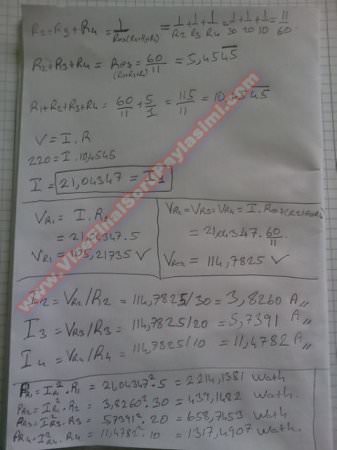 R2+R3+R4 = 1/Rp23(R2+R3+R4) = 1/R2 + 1/R3 + 1/R4 = 1/30 + 1/20 + 1/10 = 11/60
R2+R3+R4 = Rp3 (R2+R3+R4) = 60/11 = 5,4545
R1+R2+R3+R4 = 60/11 + 5/1 = 115/11 = 10,4545
V = I.R
220 = I.10,4545
I = 21,04347 = I1
VR1 = I.R1
= 21,04347.5
VR1 = 105,21735 V
VR2=VR3=VR4 = I.
= 21,04347.60/11
VR23 = 114,7825 V
I2 = VR2/R2 = 114,7825/30 = 3,8260 A
I3 = VR3/R3 = 114,7825/20 = 5,7391 A
I4 = VR4/R4 = 114,7825/10 = 11,4782 A
PR1 = IR1².R1 = 21,04347².5 = 2214,1381 Wath
PR2 = IR2².R2 = 3,8260².30 = 439,1482 Wath.
PR3 = IR3².R3 = 5,7391².20 = 658,7453 Wath.
PR4 = IR4².R4 = 11,4782².10 = 1317,4907 Wath.
www.VizeFinalSoruPaylasimi.com